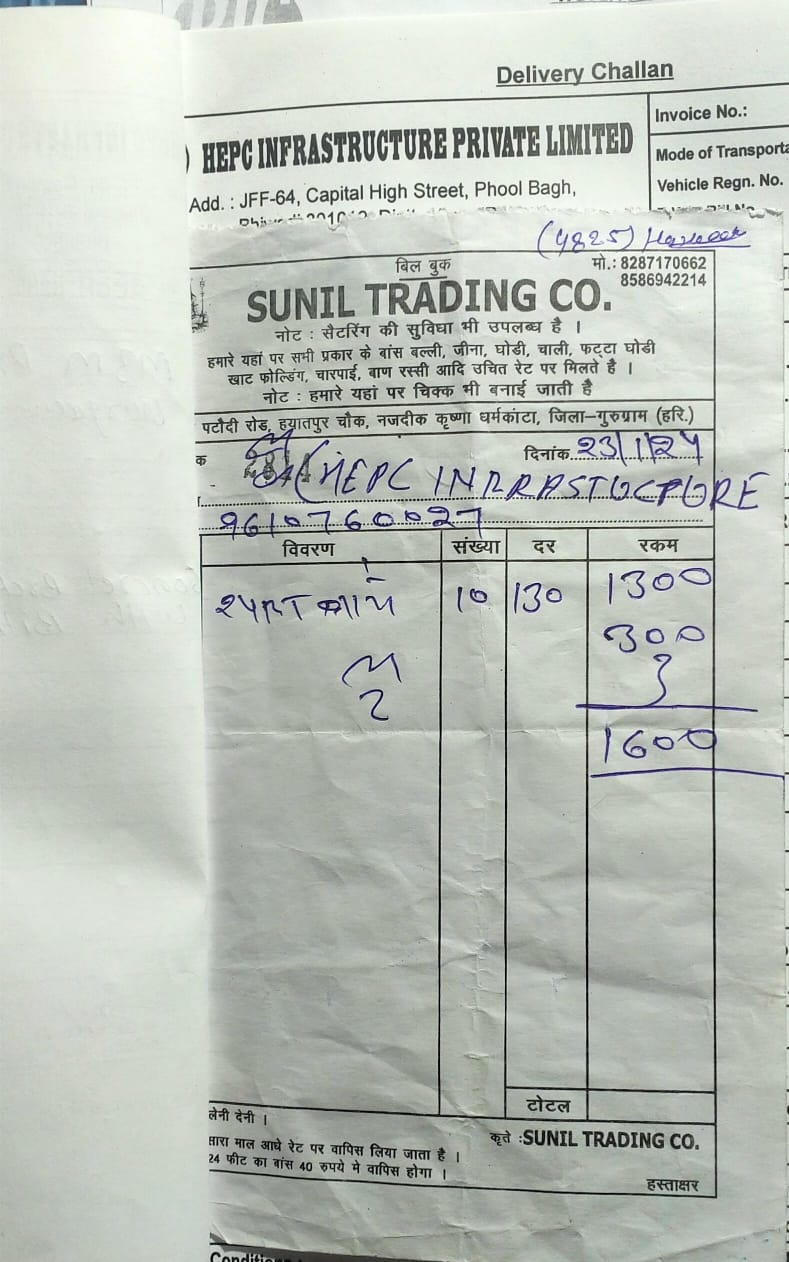 Delivery Challan
HEPC INFRASTRUCTURE PRIVATE LIMITED
Invoice No.:
Add. : JFF-64, Capital High Street, Phool Bagh,
Mode of Transporta
Vehicle Regn. No.
(4825)
बिल बुक
मो.: 8287170662
8586942214
SUNIL TRADING CO.
नोट : सैटरिंग की सुविधा भी उपलब्ध है ।
हमारे यहां पर सभी प्रकार के बांस बल्ली, जीना, घोडी, चाली, फट्टा घोडी
खाट फोल्डिंग, चारपाई, बाण रस्सी आदि उचित रेट पर मिलते है ।
नोट : हमारे यहां पर चिक्क भी बनाई जाती है
पटौदी रोड, हयातपुर चौक, नजदीक कृष्णा धर्मकांटा, जिला-गुरुग्राम (हरि.)
क
दिनांक 23/1/24
HEPC INRRASTUCPURE
9610760027
विवरण संख्या दर रकम
10 130 1300
300
1600
टोटल
लेनी देनी ।
कृते :SUNIL TRADING CO.
सारा माल आधे रेट पर वापिस लिया जाता है ।
24 फीट का बांस 40 रुपये मे वापिस होगा ।
हस्ताक्षर